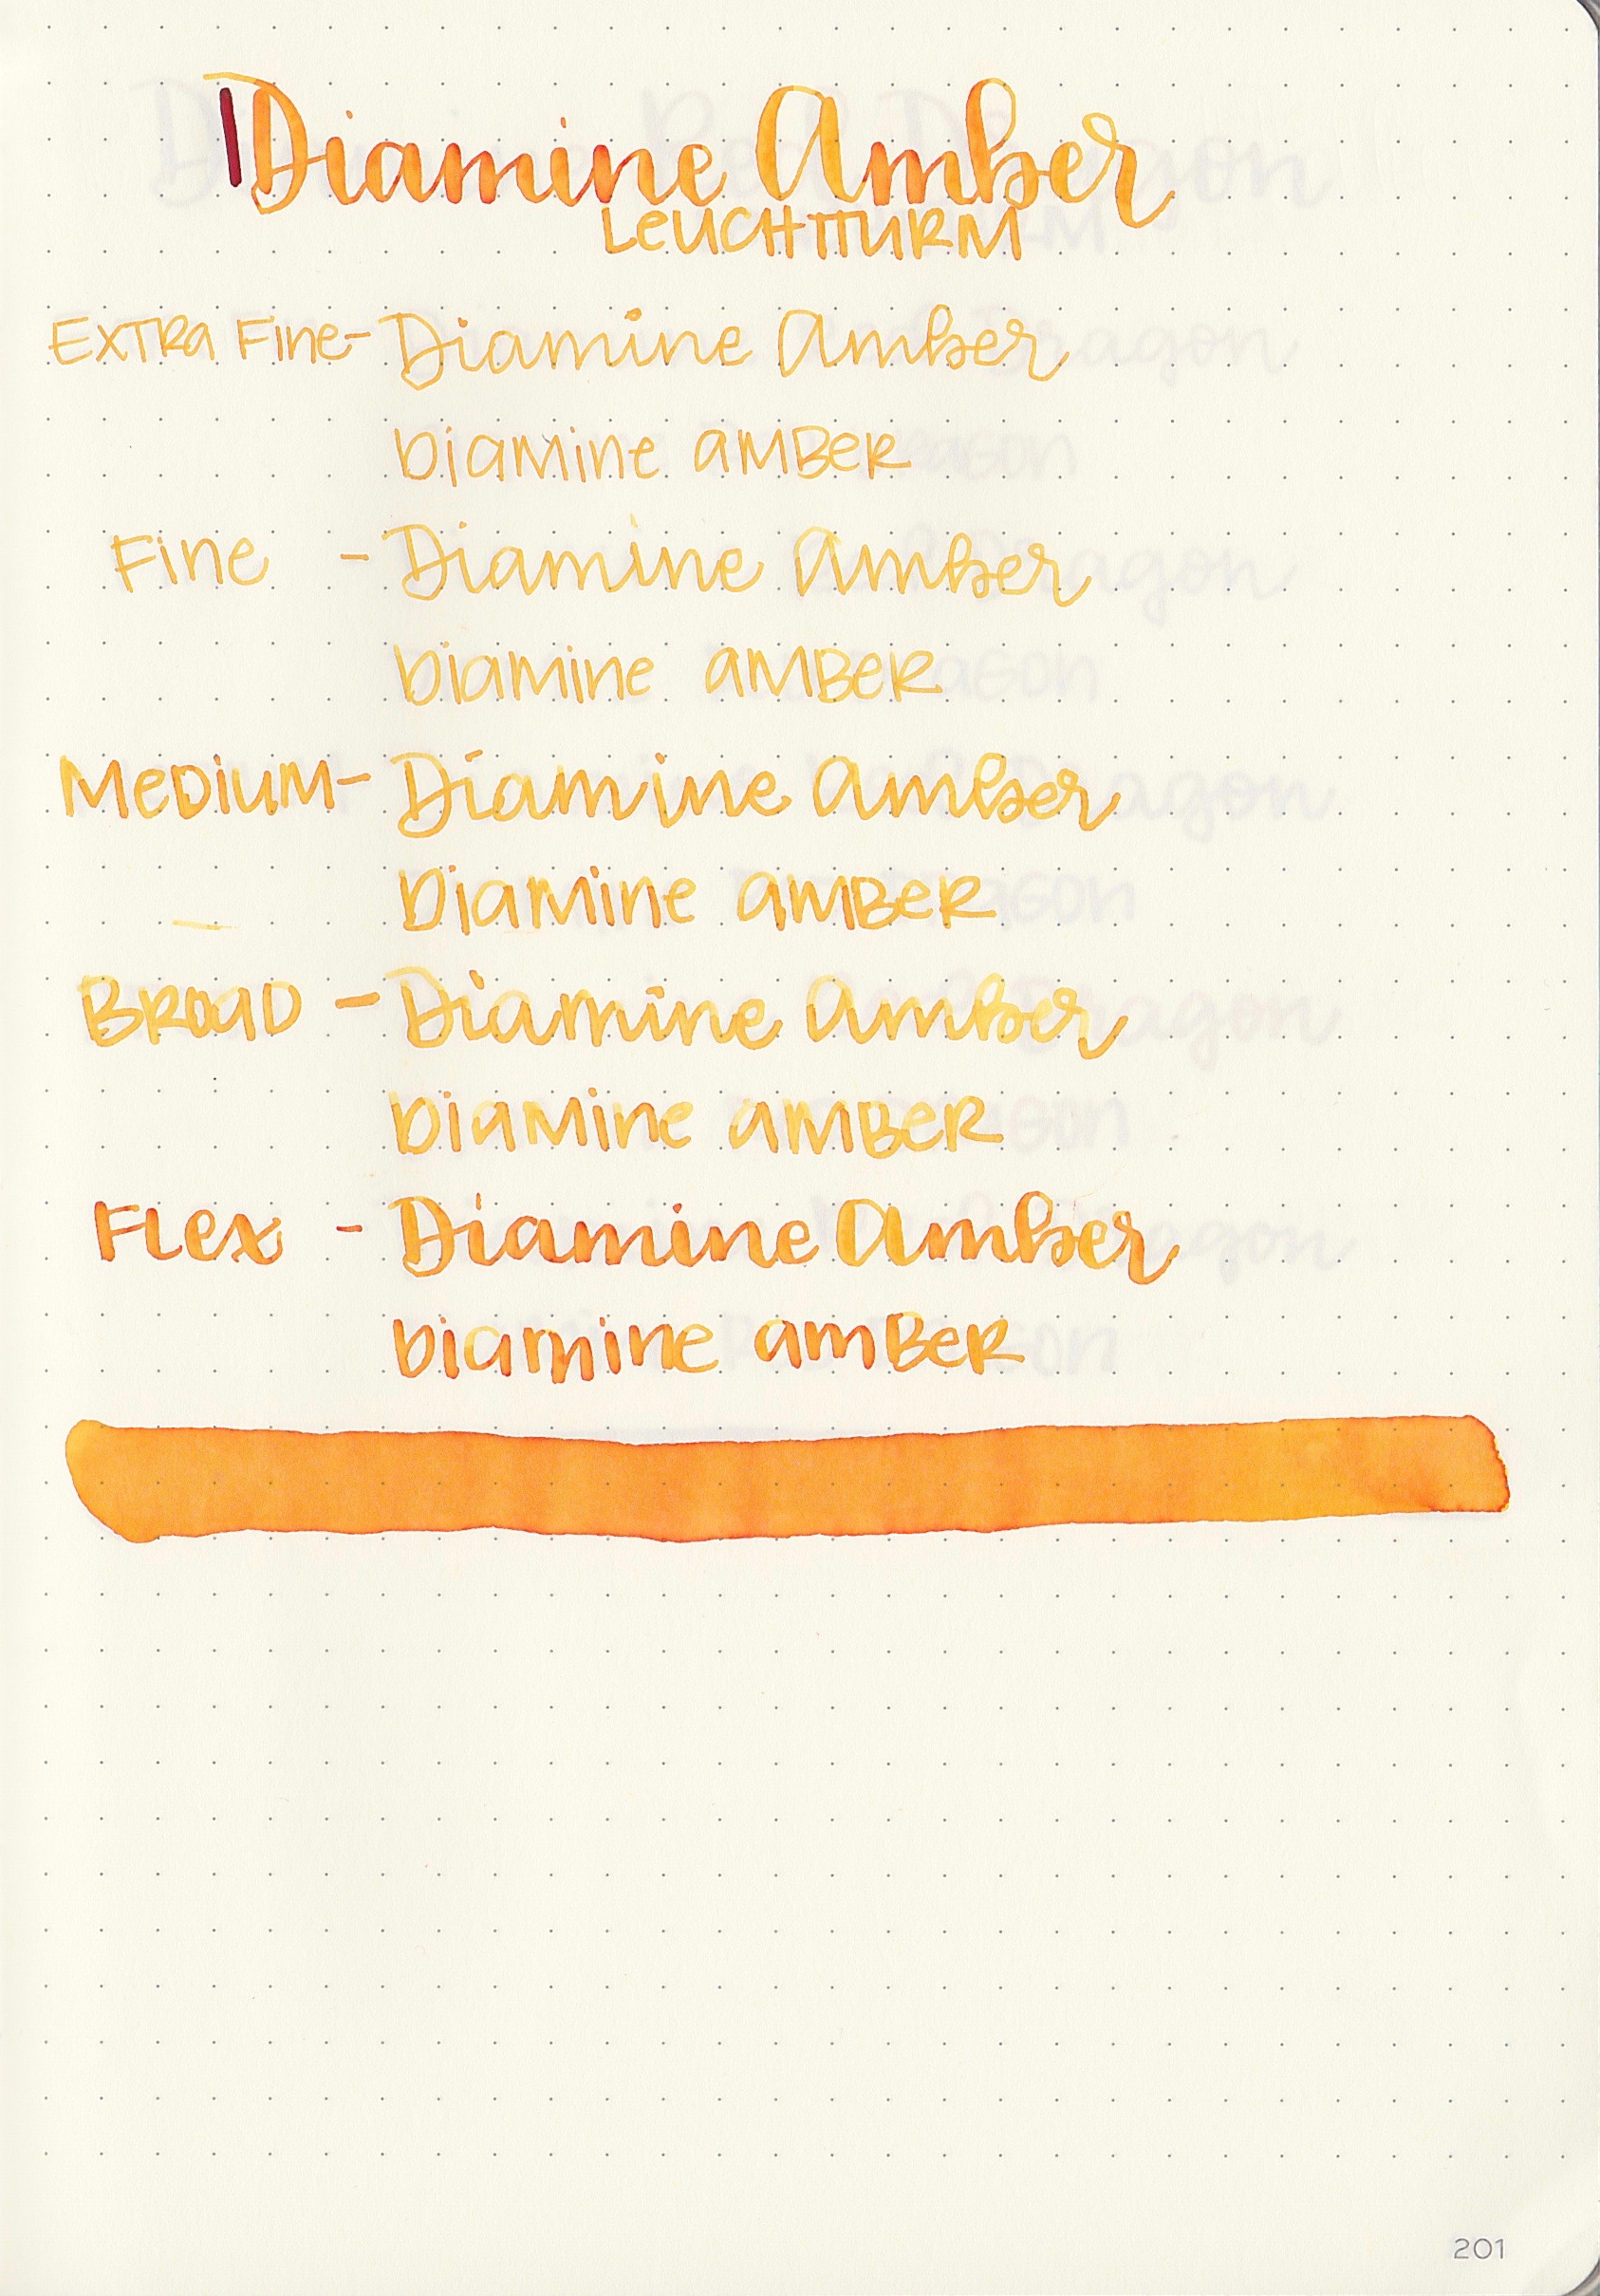 Diamine Amber
LeUCHTTURM
EXTRa Fine - Diamine Amber
Diamine AMBeR
Fine - Diamine Amber
Diamine AMBeR
MeDiUM - Diamine Amber
Diamine AMBeR
BRoaD - Diamine Amber
Diamine AMBeR
FLex - Diamine Amber
Diamine amBeR
201